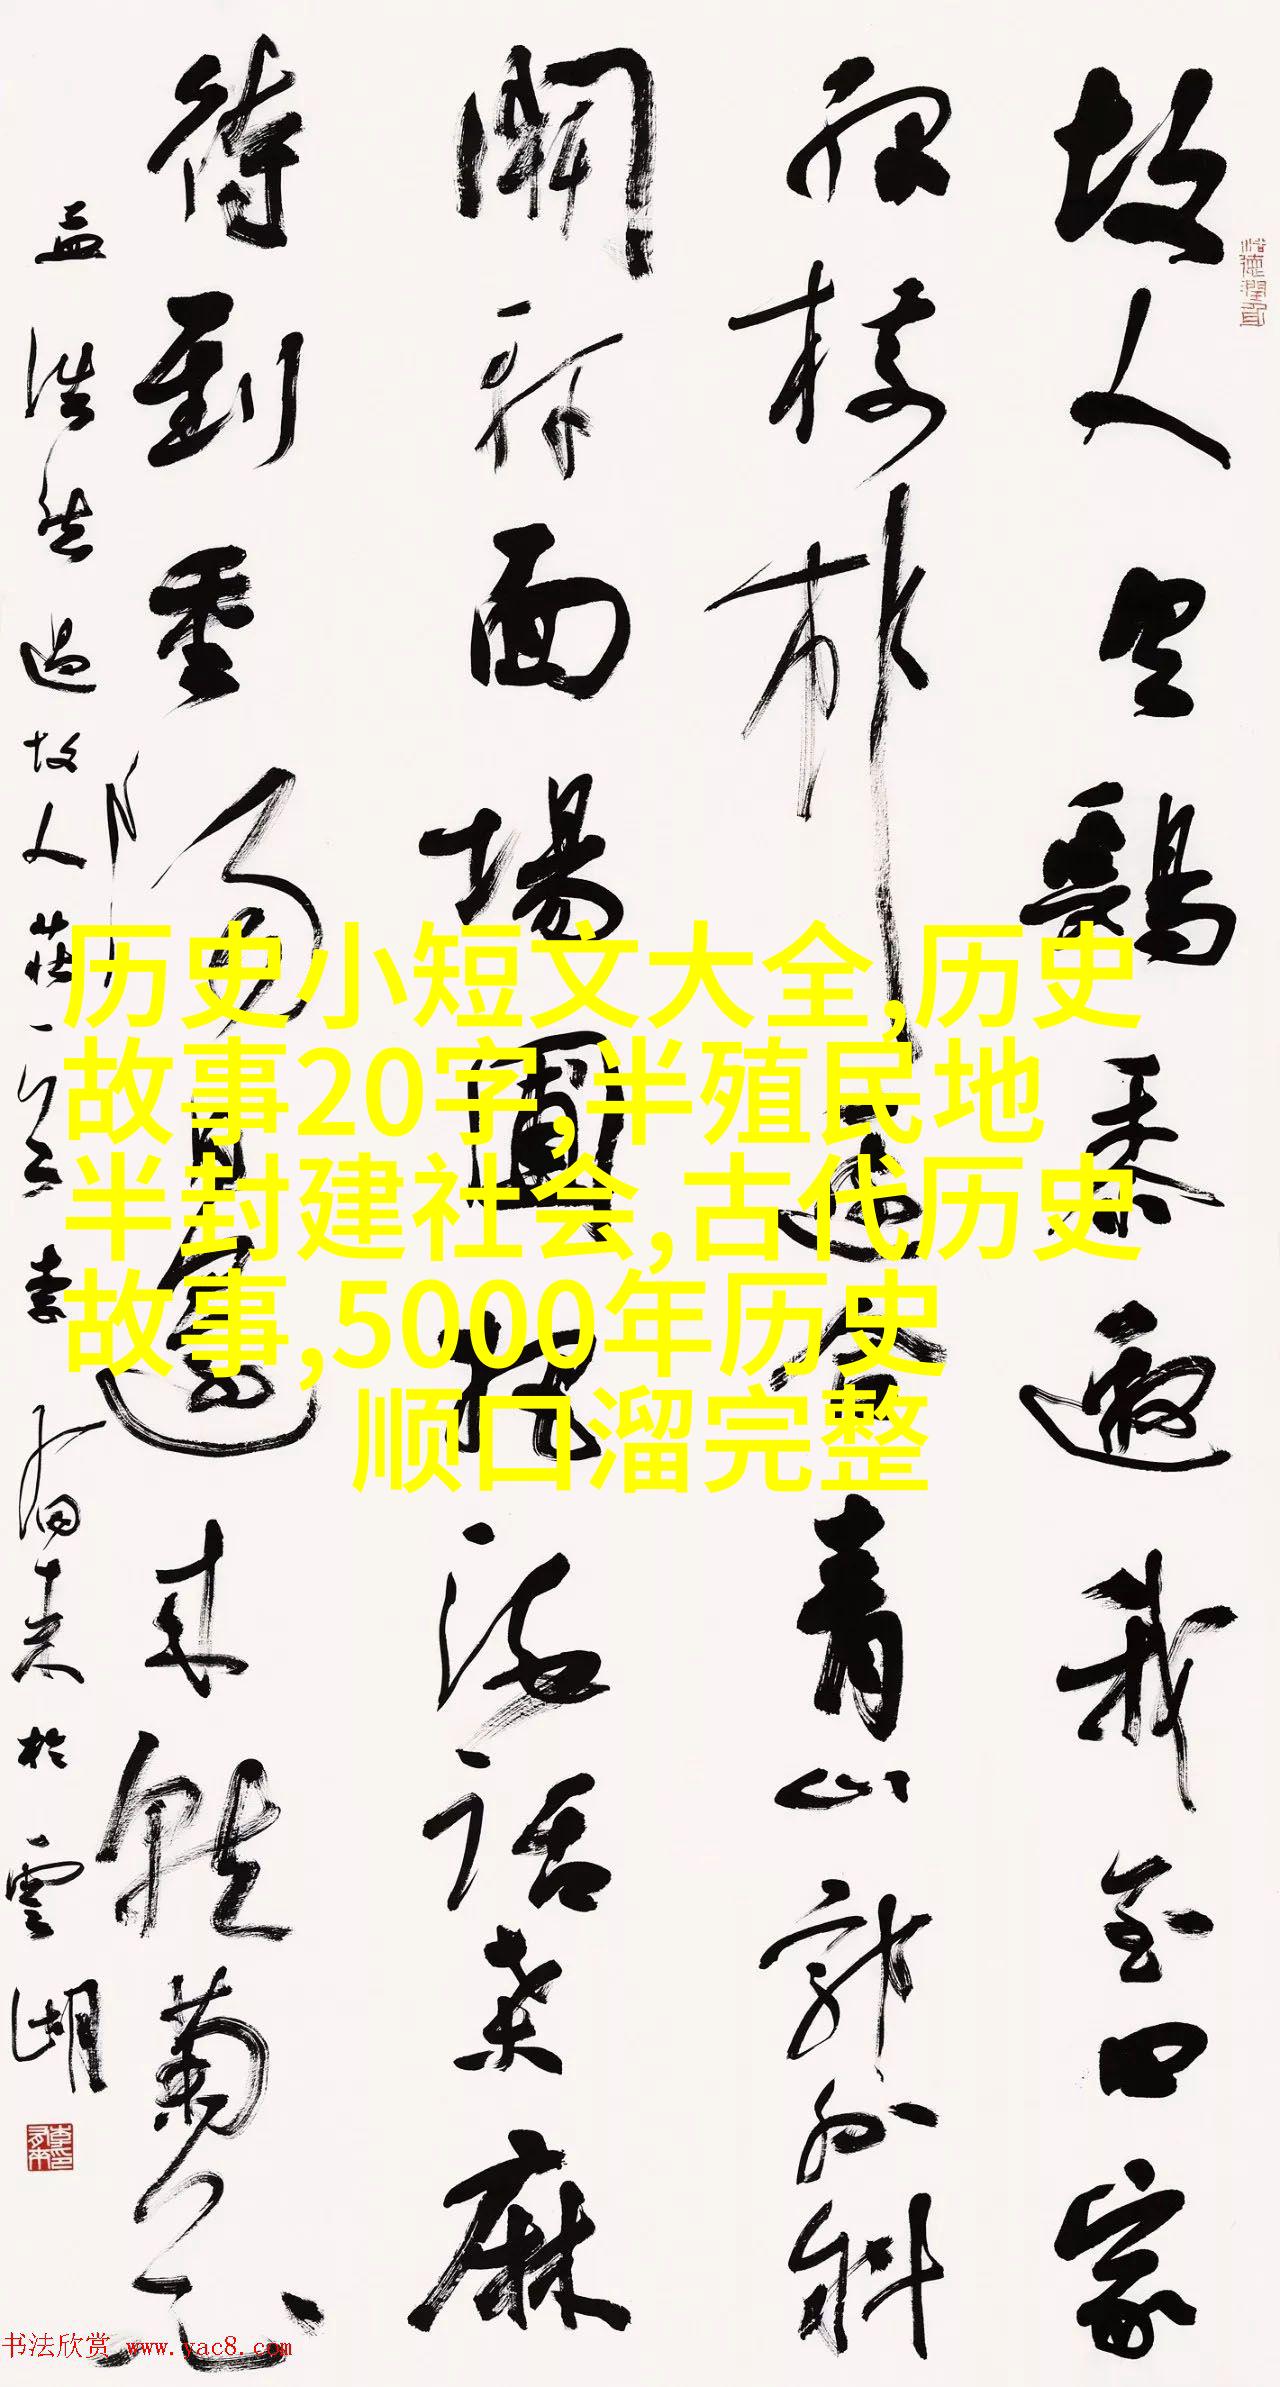 故人具鷄黍邀我至田家
綠樹村邊合青山郭外斜
開軒面場圃把酒話桑麻
待到重陽日還來就菊花
孟浩然過故人莊 李有来於雲湖
浴德潤身
历史小短文大全,历史
故事20字,半殖民地
半封建社会,古代历史
故事,5000年历史
顺口溜完整
书法欣赏 www.yac8.com